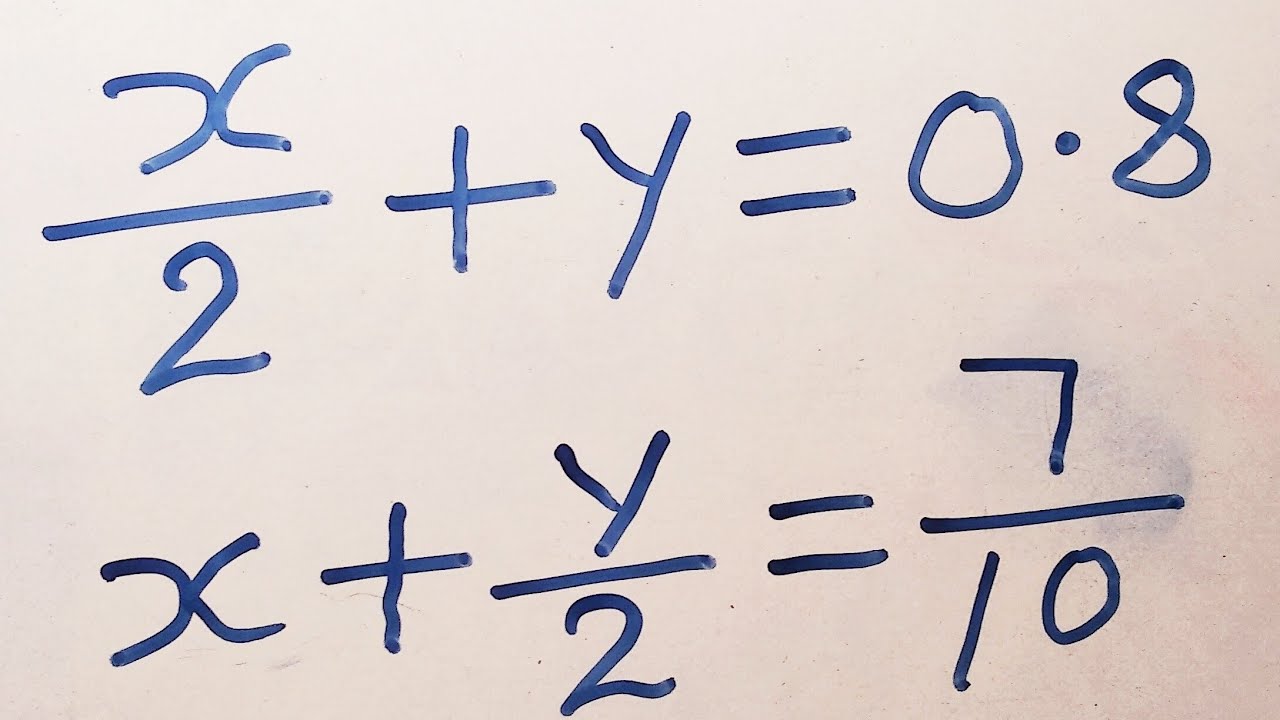 x/2 + y = 0.8
x + y/2 = 7/10